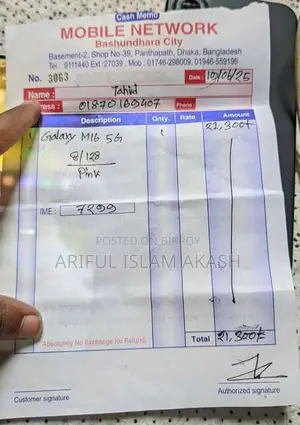 Cash Memo
MOBILE NETWORK
Bashundhara City
Basement-2, Shop No-39, Panthapath, Dhaka, Bangladesh
Tel : 9111440 Ext :27039 , Mob : 01746-298009, 01946-559196
No. 3063 Date : 10/06/25
Name : Tahid
ress : 01870169407 Phone
Description Qnty. Rate Amount
Galaxy M16 5G 1 21,300/-
8/128
Pink
IME : 7299
POSTED ON BIKROY
ARIFUL ISLAM AKASH
Absolutely No Exchange No Refund.
Total 21,300/-
Customer signature Authorized signature